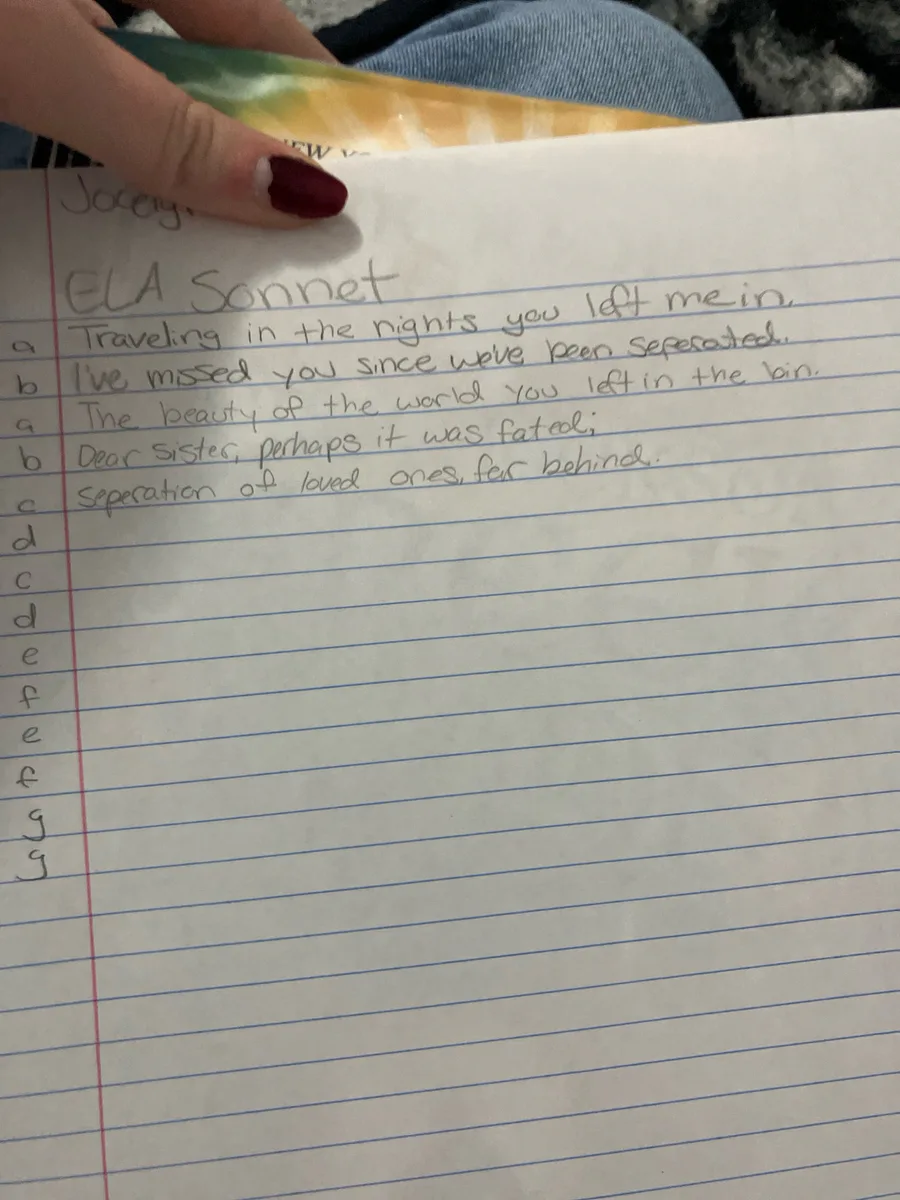 ELA Sonnet
a Traveling in the nights you left me in.
b I've missed you since we've been seperated.
a The beauty of the world you left in the bin.
b Dear sister, perhaps it was fated;
c seperation of loved ones, far behind.
d
c
d
e
f
e
f
g
g